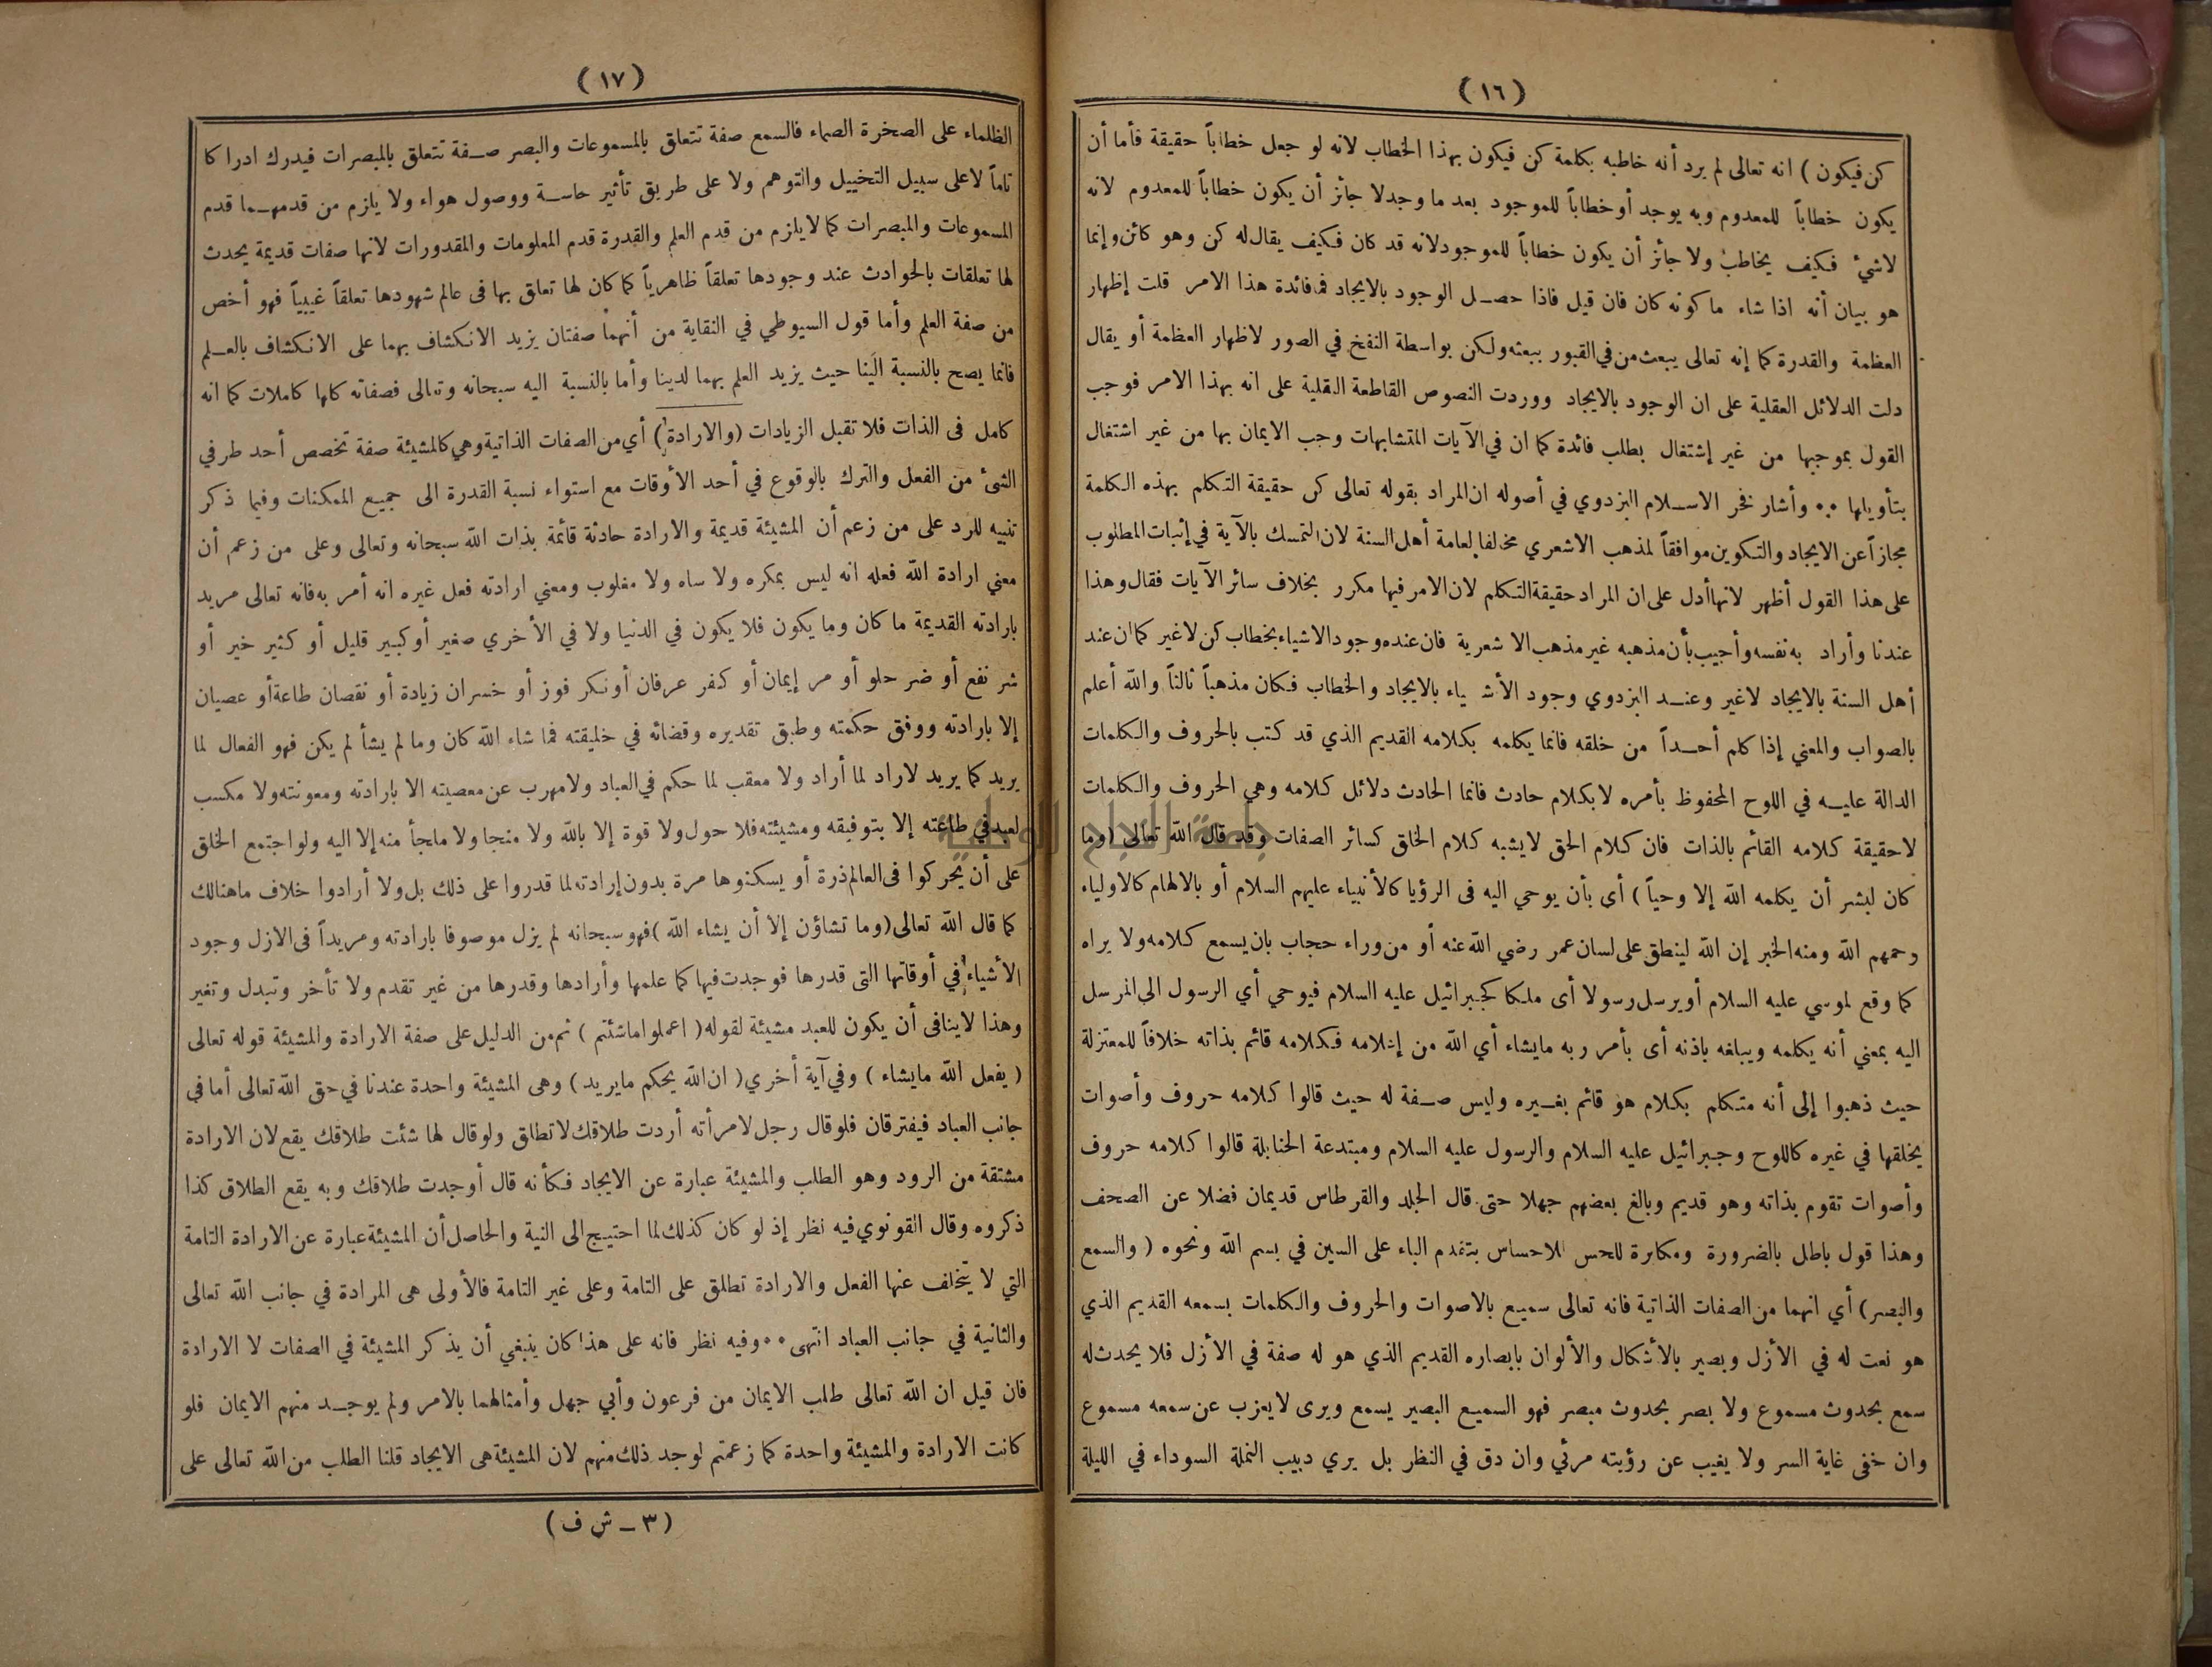 (١٦)
كن فيكون ) انه تعالى لم يرد أنه خاطبه بكلمة كن فيكون بهذا الخطاب لانه لو جعل خطاباً حقيقة فأما أن
يكون خطاباً للمعدوم وبه يوجد أو خطاباً للموجود بعد ما وجد لا جائز أن يكون خطاباً للمعدوم لانه
لاشئ فكيف يخاطب ولا جائز أن يكون خطاباً للموجود لانه قد كان فكيف يقال له كن وهو كائن وإنما
هو بيان أنه اذا شاء ما كونه كان فان قيل فاذا حصل الوجود بالايجاد فما فائدة هذا الامر قلت إظهار
العظمة والقدرة كما إنه تعالى يبعث من في القبور ببعثه ولكن بواسطة النفخ في الصور لاظهار العظمة أو يقال
دلت الدلائل العقلية على ان الوجود بالايجاد ووردت النصوص القاطعة النقلية على انه بهذا الامر فوجب
القول بموجبها من غير إشتغال بطلب فائدة كما ان في الآيات المتشابهات وجب الايمان بها من غير اشتغال
بتأويلها ٠٠ وأشار فخر الاسلام البزدوي في أصوله ان المراد بقوله تعالى كن حقيقة التكلم بهذه الكلمة
مجازاً عن الايجاد والتكوين موافقاً لمذهب الاشعري مخالفا لعامة أهل السنة لان التمسك بالآية في إثبات المطلوب
على هذا القول أظهر لانها أدل على ان المراد حقيقة التكلم لان الامر فيها مكرر بخلاف سائر الآيات فقال وهذا
عندنا وأراد به نفسه وأجيب بأن مذهبه غير مذهب الاشعرية فان عنده وجود الاشياء بخطاب كن لاغير كما ان عند
أهل السنة بالايجاد لاغير وعند البزدوي وجود الأشياء بالايجاد والخطاب فكان مذهباً ثالثاً والله أعلم
بالصواب والمعني إذا كلم أحداً من خلقه فانما يكلمه بكلامه القديم الذي قد كتب بالحروف والكلمات
الدالة عليه في اللوح المحفوظ بأمره لا بكلام حادث فانما الحادث دلائل كلامه وهي الحروف والكلمات
لاحقيقة كلامه القائم بالذات فان كلام الحق لايشبه كلام الخلق كسائر الصفات وقد قال الله تعالى (وما
كان لبشر أن يكلمه الله إلا وحياً ) أي بأن يوحي اليه فى الرؤيا كالأنبياء عليهم السلام أو بالالهام كالاولياء
رحمهم الله ومنه الخبر إن الله لينطق على لسان عمر رضي الله عنه أو من وراء حجاب بان يسمع كلامه ولا يراه
كما وقع لموسي عليه السلام أو يرسل رسولا أى ملكا كجبرائيل عليه السلام فيوحي أي الرسول الى المرسل
اليه بمعني أنه يكلمه ويبلغه باذنه أى بأمر ربه مايشاء أي الله من إعلامه فكلامه قائم بذاته خلافاً للمعتزلة
حيث ذهبوا إلى أنه متكلم بكلام هو قائم بغيره وليس صفة له حيث قالوا كلامه حروف وأصوات
يخلقها في غيره كاللوح وجبرائيل عليه السلام والرسول عليه السلام ومبتدعة الحنابلة قالوا كلامه حروف
وأصوات تقوم بذاته وهو قديم وبالغ بعضهم جهلا حتى قال الجلد والقرطاس قديمان فضلا عن الصحف
وهذا قول باطل بالضرورة ومكابرة للحس للاحساس بتقدم الباء على السين في بسم الله ونحوه ( والسمع
والبصر) أي انهما من الصفات الذاتية فانه تعالى سميع بالاصوات والحروف والكلمات بسمعه القديم الذي
هو نعت له في الأزل وبصير بالأشكال والألوان بابصاره القديم الذي هو له صفة في الأزل فلا يحدث له
سمع بحدوث مسموع ولا بصر بحدوث مبصر فهو السميع البصير يسمع ويرى لايعزب عن سمعه مسموع
وان خفى غاية السر ولا يغيب عن رؤيته مرئي وان دق في النظر بل يري دبيب النملة السوداء في الليلة
(١٧)
الظلماء على الصخرة الصماء فالسمع صفة تتعلق بالمسموعات والبصر صفة تتعلق بالمبصرات فيدرك ادراكا
تاماً لاعلى سبيل التخييل والتوهم ولا على طريق تأثير حاسة ووصول هواء ولا يلزم من قدمهما قدم
المسموعات والمبصرات كما لايلزم من قدم العلم والقدرة قدم المعلومات والمقدورات لانها صفات قديمة يحدث
لها تعلقات بالحوادث عند وجودها تعلقاً ظاهرياً كما كان لها تعلق بها فى عالم شهودها تعلقاً غيبياً فهو أخص
من صفة العلم وأما قول السيوطي في النقاية من أنهما صفتان يزيد الانكشاف بهما على الانكشاف بالعلم
فانما يصح بالنسبة الينا حيث يزيد العلم بهما لدينا وأما بالنسبة اليه سبحانه وتعالى فصفاته كلها كاملات كما انه
كامل فى الذات فلا تقبل الزيادات (والارادة) أي من الصفات الذاتية وهي كالمشيئة صفة تخصص أحد طرفي
الشئ من الفعل والترك بالوقوع في أحد الأوقات مع استواء نسبة القدرة الى جميع الممكنات وفيما ذكر
تنبيه للرد على من زعم أن المشيئة قديمة والارادة حادثة قائمة بذات الله سبحانه وتعالى وعلى من زعم أن
معني ارادة الله فعله انه ليس بمكره ولا ساه ولا مغلوب ومعني ارادته فعل غيره انه أمر به فانه تعالى مريد
بارادته القديمة ما كان وما يكون فلا يكون في الدنيا ولا في الأخري صغير أو كبير قليل أو كثير خير أو
شر نفع أو ضر حلو أو مر إيمان أو كفر عرفان أو نكر فوز أو خسران زيادة أو نقصان طاعة أو عصيان
إلا بارادته ووفق حكمته وطبق تقديره وقضائه في خليقته فما شاء الله كان وما لم يشأ لم يكن فهو الفعال لما
يريد كما يريد لاراد لما أراد ولا معقب لما حكم في العباد ولا مهرب عن معصيته الا بارادته ومعونته ولا مكسب
لعبد في طاعته إلا بتوفيقه ومشيئته فلا حول ولا قوة إلا بالله ولا منجا ولا ملجأ منه إلا اليه ولو اجتمع الخلق
على أن يحركوا فى العالم ذرة أو يسكنوها مرة بدون إرادته لما قدروا على ذلك بل ولا أرادوا خلاف ماهنالك
كما قال الله تعالى (وما تشاؤن إلا أن يشاء الله ) فهو سبحانه لم يزل موصوفا بارادته ومريداً فى الازل وجود
الأشياء في أوقاتها التى قدرها فوجدت فيها كما علمها وأرادها وقدرها من غير تقدم ولا تأخر وتبدل وتغير
وهذا لاينافى أن يكون للعبد مشيئة لقوله ( اعملوا ماشئتم ) ثم من الدليل على صفة الارادة والمشيئة قوله تعالى
( يفعل الله مايشاء ) وفي آية أخري ( ان الله يحكم مايريد ) وهى المشيئة واحدة عندنا في حق الله تعالى أما في
جانب العباد فيفترقان فلو قال رجل لامرأته أردت طلاقك لا تطلق ولو قال لها شئت طلاقك يقع لان الارادة
مشتقة من الرود وهو الطلب والمشيئة عبارة عن الايجاد فكأنه قال أوجدت طلاقك وبه يقع الطلاق كذا
ذكروه وقال القونوي فيه نظر إذ لو كان كذلك لما احتيج الى النية والحاصل أن المشيئة عبارة عن الارادة التامة
التي لا يتخلف عنها الفعل والارادة تطلق على التامة وعلى غير التامة فالأولى هى المرادة في جانب الله تعالى
والثانية في جانب العباد انتهى ٠٠ وفيه نظر فانه على هذا كان ينبغي أن يذكر المشيئة في الصفات لا الارادة
فان قيل ان الله تعالى طلب الايمان من فرعون وأبي جهل وأمثالهما بالامر ولم يوجد منهم الايمان فلو
كانت الارادة والمشيئة واحدة كما زعمتم لوجد ذلك منهم لان المشيئة هى الايجاد قلنا الطلب من الله تعالى على
(٣ ـ ش ف)